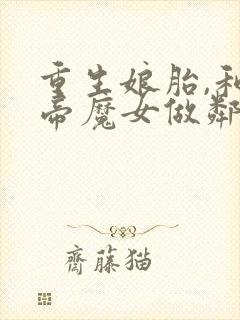 重生娘胎,和
帝魔女做鄰
齊藤猫